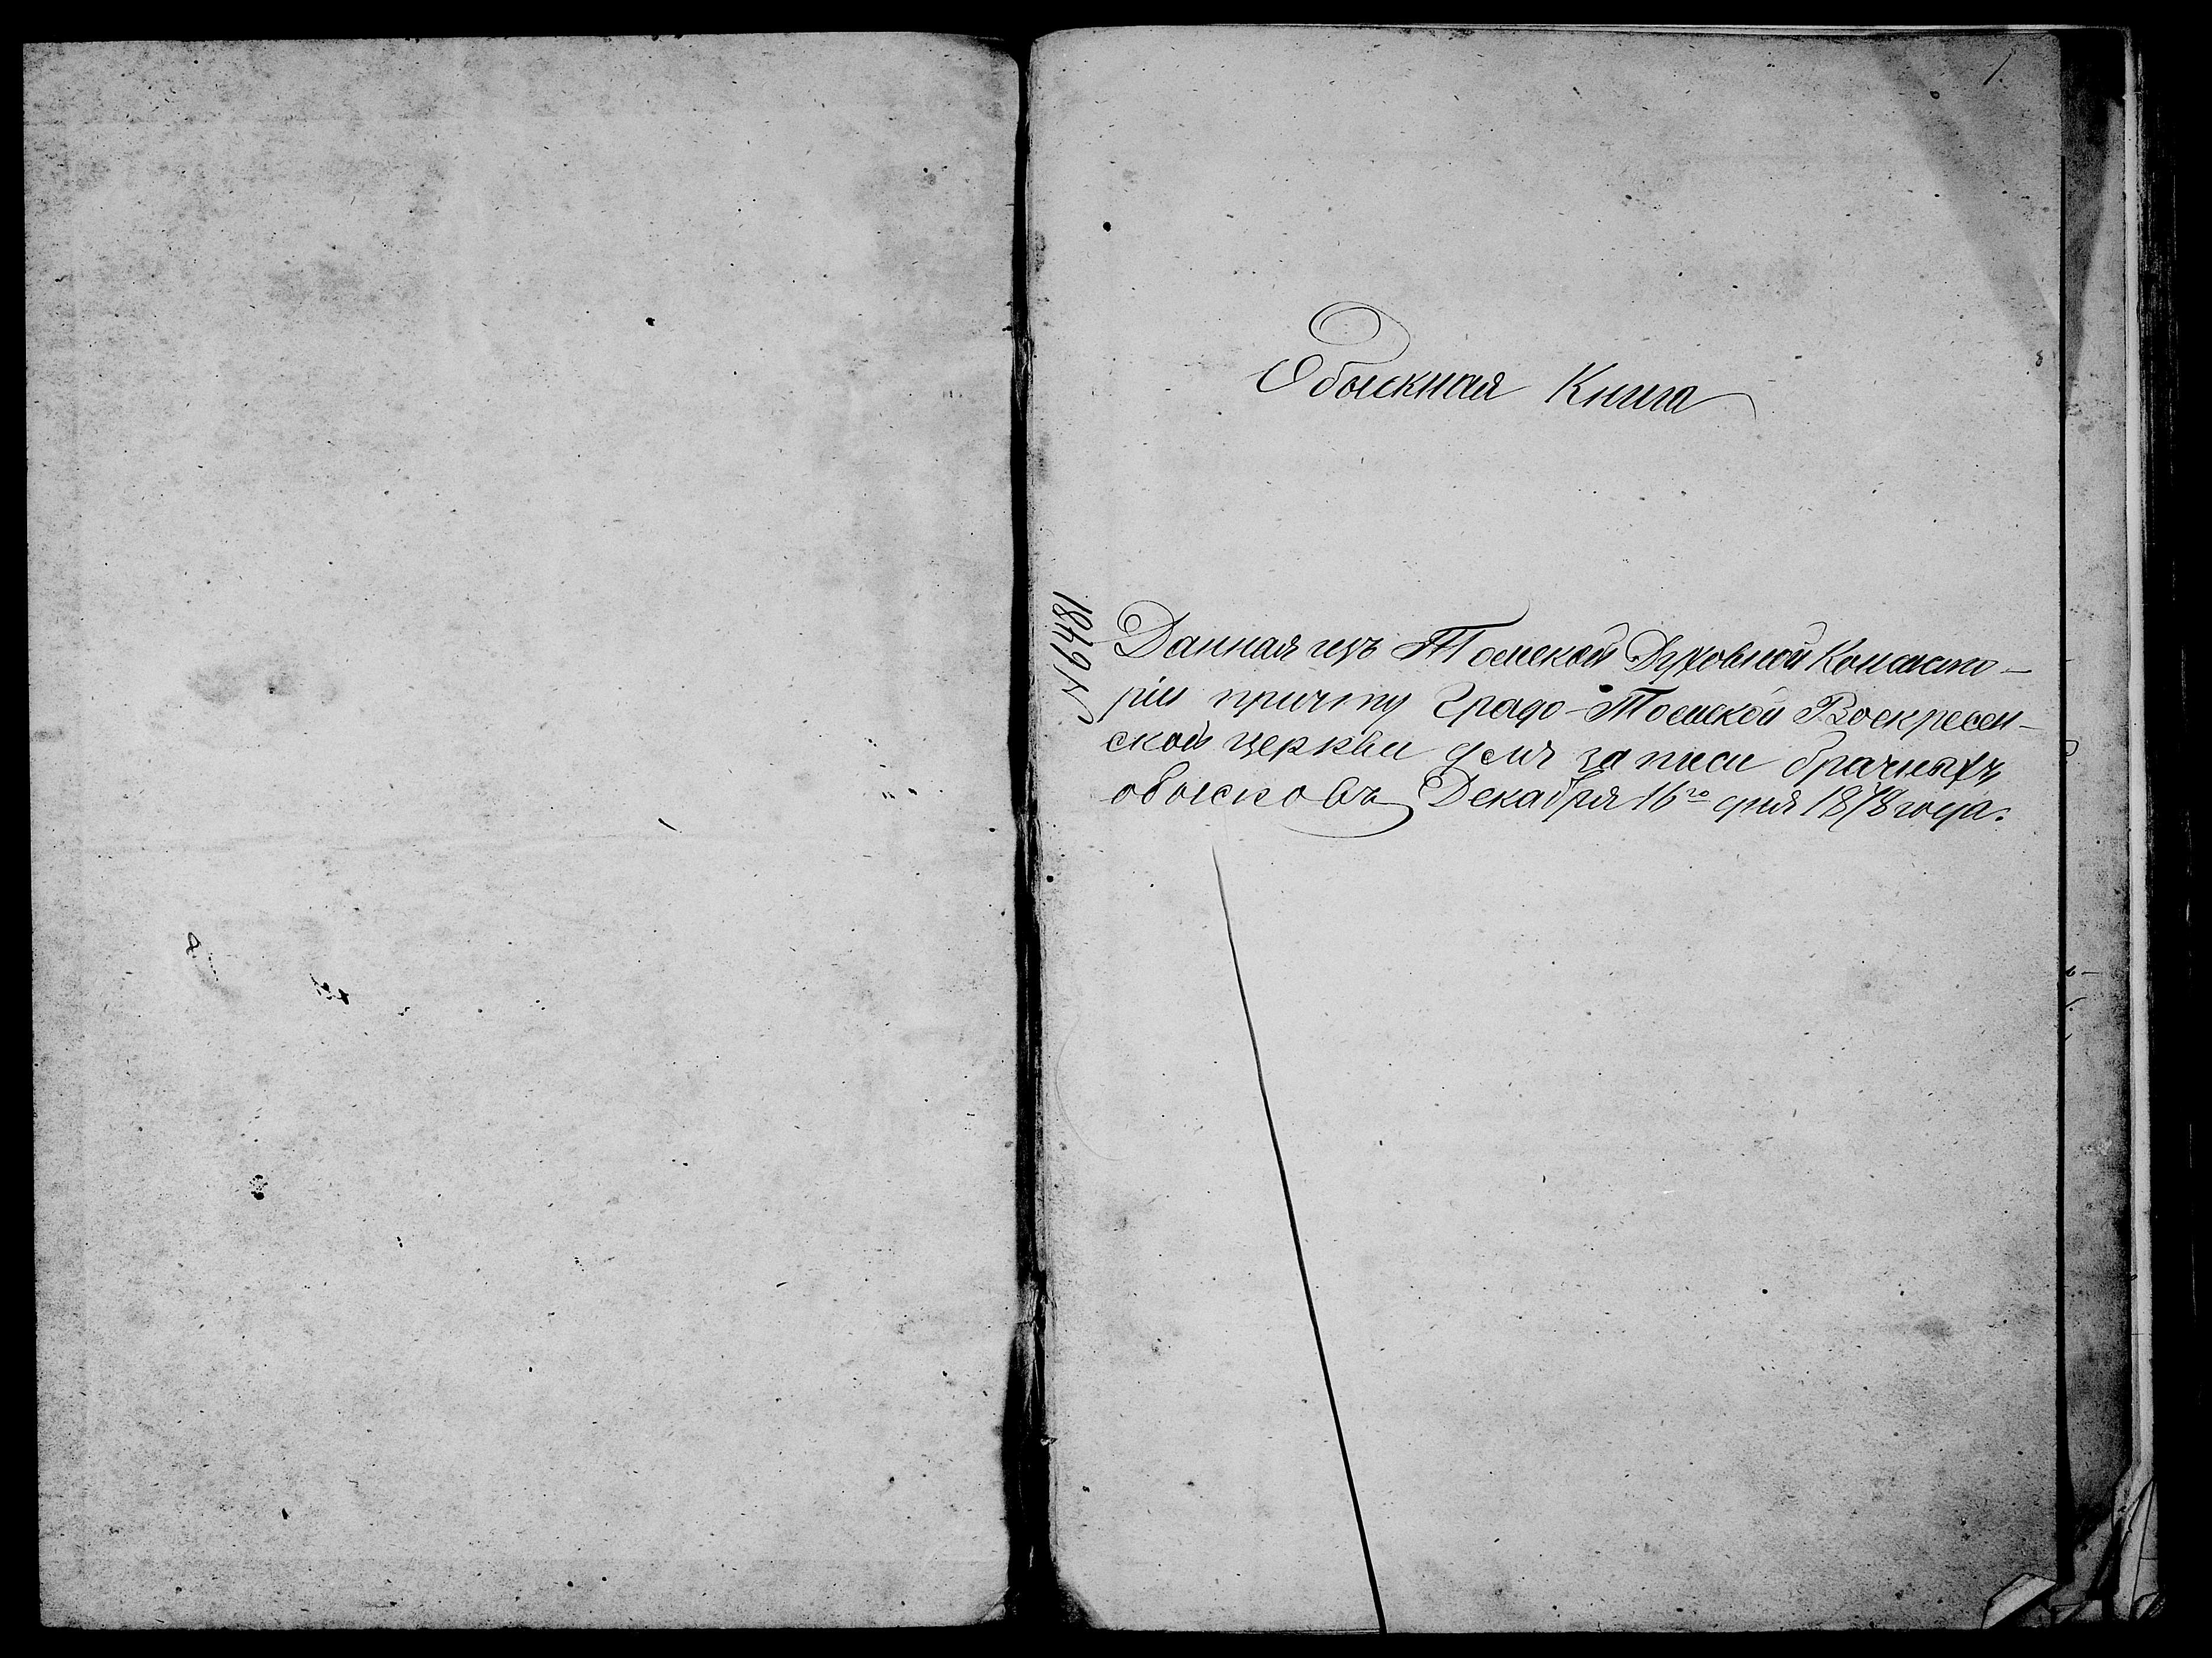 1.
Обыскная Книга
Данная изъ Томской Духовной Консисто-
ріи причту Градо-Томской Воскресен-
ской церкви для записи брачныхъ
обысковъ Декабря 16го дня 1878 года.